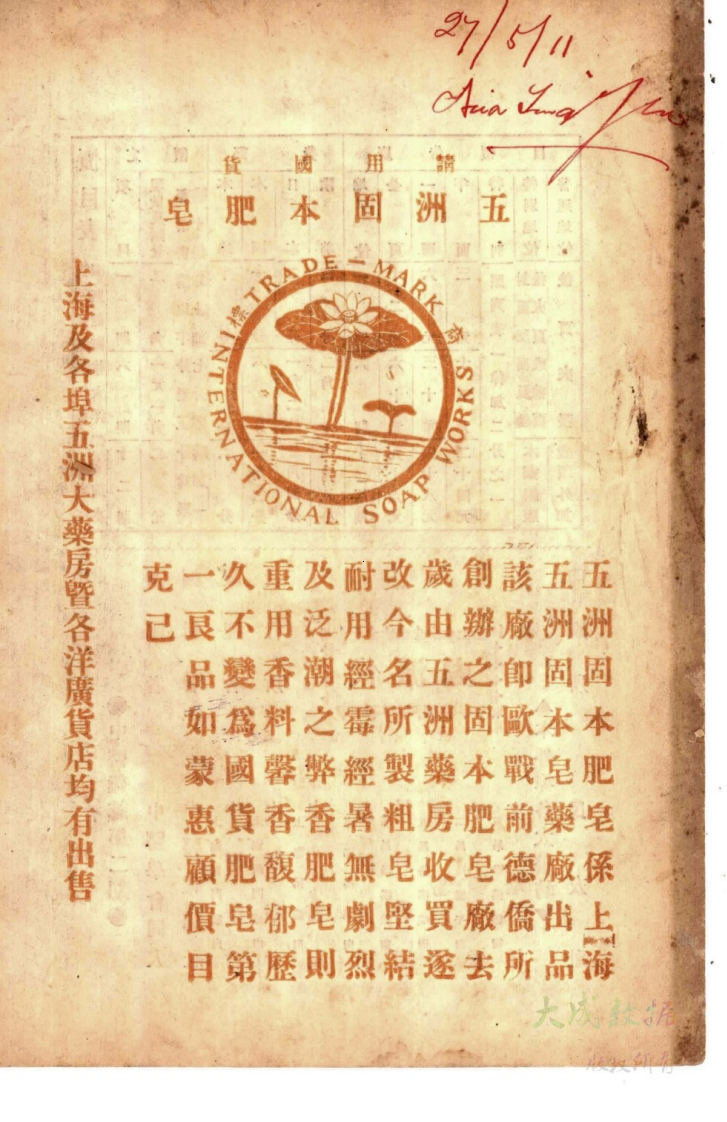 27/5/11
請用國貨
五洲固本肥皂
TRADE-MARK
商標
INTERNATIONAL SOAP WORKS
五洲固本肥皂係上海
五洲固本皂藥廠出品
該廠卽歐戰前德僑所
創辦之固本肥皂廠去
歲由五洲藥房收買遂
改今名所製粗皂堅結
耐用經霉經暑無劇烈
及泛潮之弊香肥皂則
重用香料馨香馥郁歷
久不變爲國貨肥皂第
一良品如蒙惠顧價目
克己
上海及各埠五洲大藥房曁各洋廣貨店均有出售
大成数据
版权所有